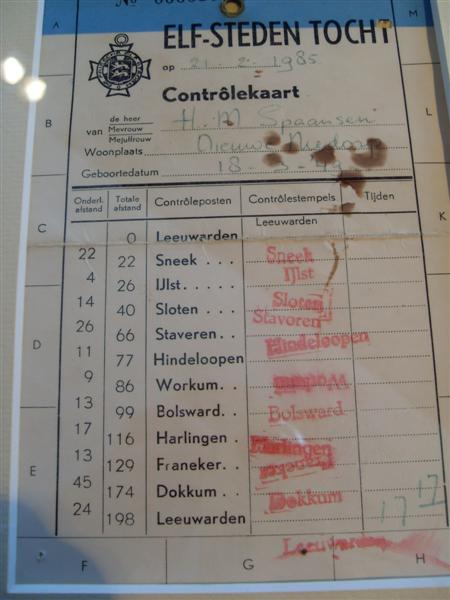 No
A
M
ELF-STEDEN TOCHT
op 21. 2. 1985
Contrôlekaart
B
L
de heer
van Mevrouw H. M Spaansen
Mejuffrouw
Woonplaats Nieuwe Niedorp
Geboortedatum 18-
Onderl. afstand Totale afstand Contrôleposten Contrôlestempels Tijden
C
K
0 Leeuwarden Leeuwarden
22 22 Sneek . . . Sneek
4 26 IJlst. . . . . IJlst
14 40 Sloten . . . Sloten
26 66 Staveren . . Stavoren
D
J
11 77 Hindeloopen Hindeloopen
9 86 Workum. . Workum
13 99 Bolsward. . Bolsward
17 116 Harlingen . Harlingen
13 129 Franeker. . Franeker
E
45 174 Dokkum . . Dokkum
24 198 Leeuwarden 17 17
Leeuwarden
F
G
H